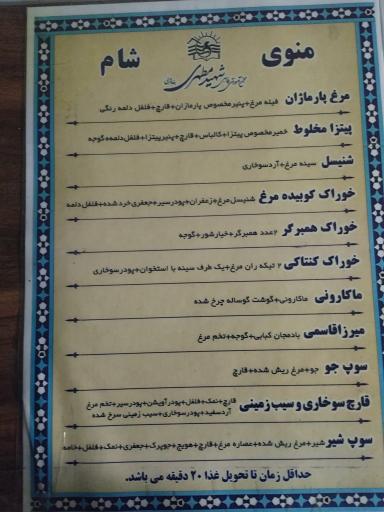 منوی شام
شهید مطهری
مرغ پارمازان فیله مرغ+پنیرمخصوص پارمازان+قارچ+فلفل دلمه رنگی
پیتزا مخلوط خمیرمخصوص پیتزا+کالباس+قارچ+پنیرپیتزا+فلفل‌دلمه+گوجه
شنیسل سینه مرغ+آردسوخاری
خوراک کوبیده مرغ شنیسل‌مرغ+زعفران+پودرسیر+جعفری‌خردشده+فلفل‌دلمه
خوراک همبرگر ۲عدد همبرگر+خیارشور+گوجه
خوراک کنتاکی ۲ تیکه ران مرغ+یک طرف سینه با استخوان+پودرسوخاری
ماکارونی ماکارونی+گوشت گوساله چرخ شده
میرزاقاسمی بادمجان کبابی+گوجه+تخم مرغ
سوپ جو جو+مرغ ریش شده+قارچ
قارچ سوخاری و سیب زمینی قارچ+نمک+فلفل+پودرآویشن+پودرسیر+تخم مرغ
آردسفید+پودرسوخاری+سیب زمینی سرخ شده
سوپ شیر شیر+مرغ ریش شده+عصاره مرغ+قارچ+هویج+جوپرک+جعفری+نمک+فلفل+خامه
حداقل زمان تا تحویل غذا ۲۰ دقیقه می باشد.